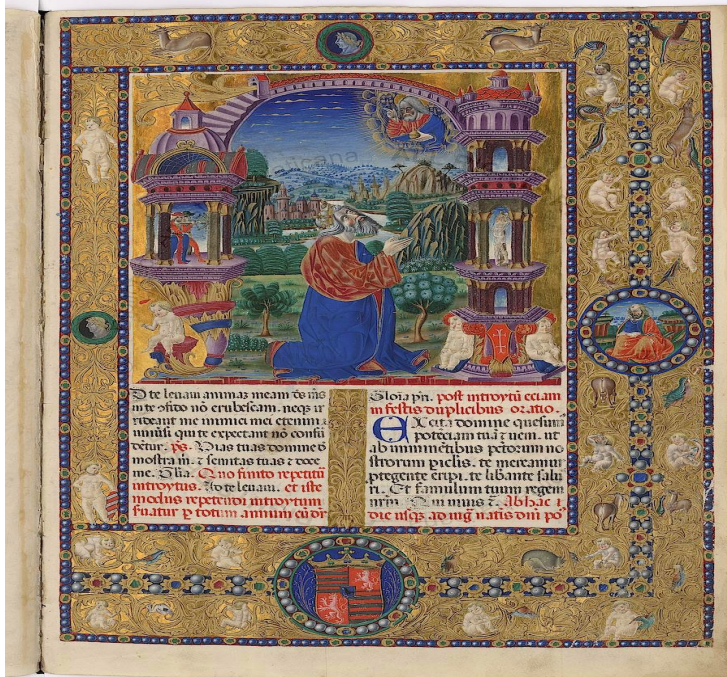 te leuaui animaz meam ds ms
in te 9fido nō erubescam. neqz ir
rideant me inimici mei etenim u
niuersi qui te expectant nō confū
detur. ps. Vias tuas domine d
mostra m. z semitas tuas e doce
me. Glia. Quo finito repetitū
introytus. Ad te leuaui. et iste
modus repetendi introytum
suatur p totum annum cū dr
Gloria pri. post introytū eciam
in festis duplicibus oratio.
Excita domine quesum
potēciam tuā z ueni. ut
ab iminentibus petorum no
strorum piclis. te mereamur
ptegente eripi. te libante salu
ri. Et famulum tuum regem
nrm. Qui uiuis z. Ab hac
die usqz ad natis dni po